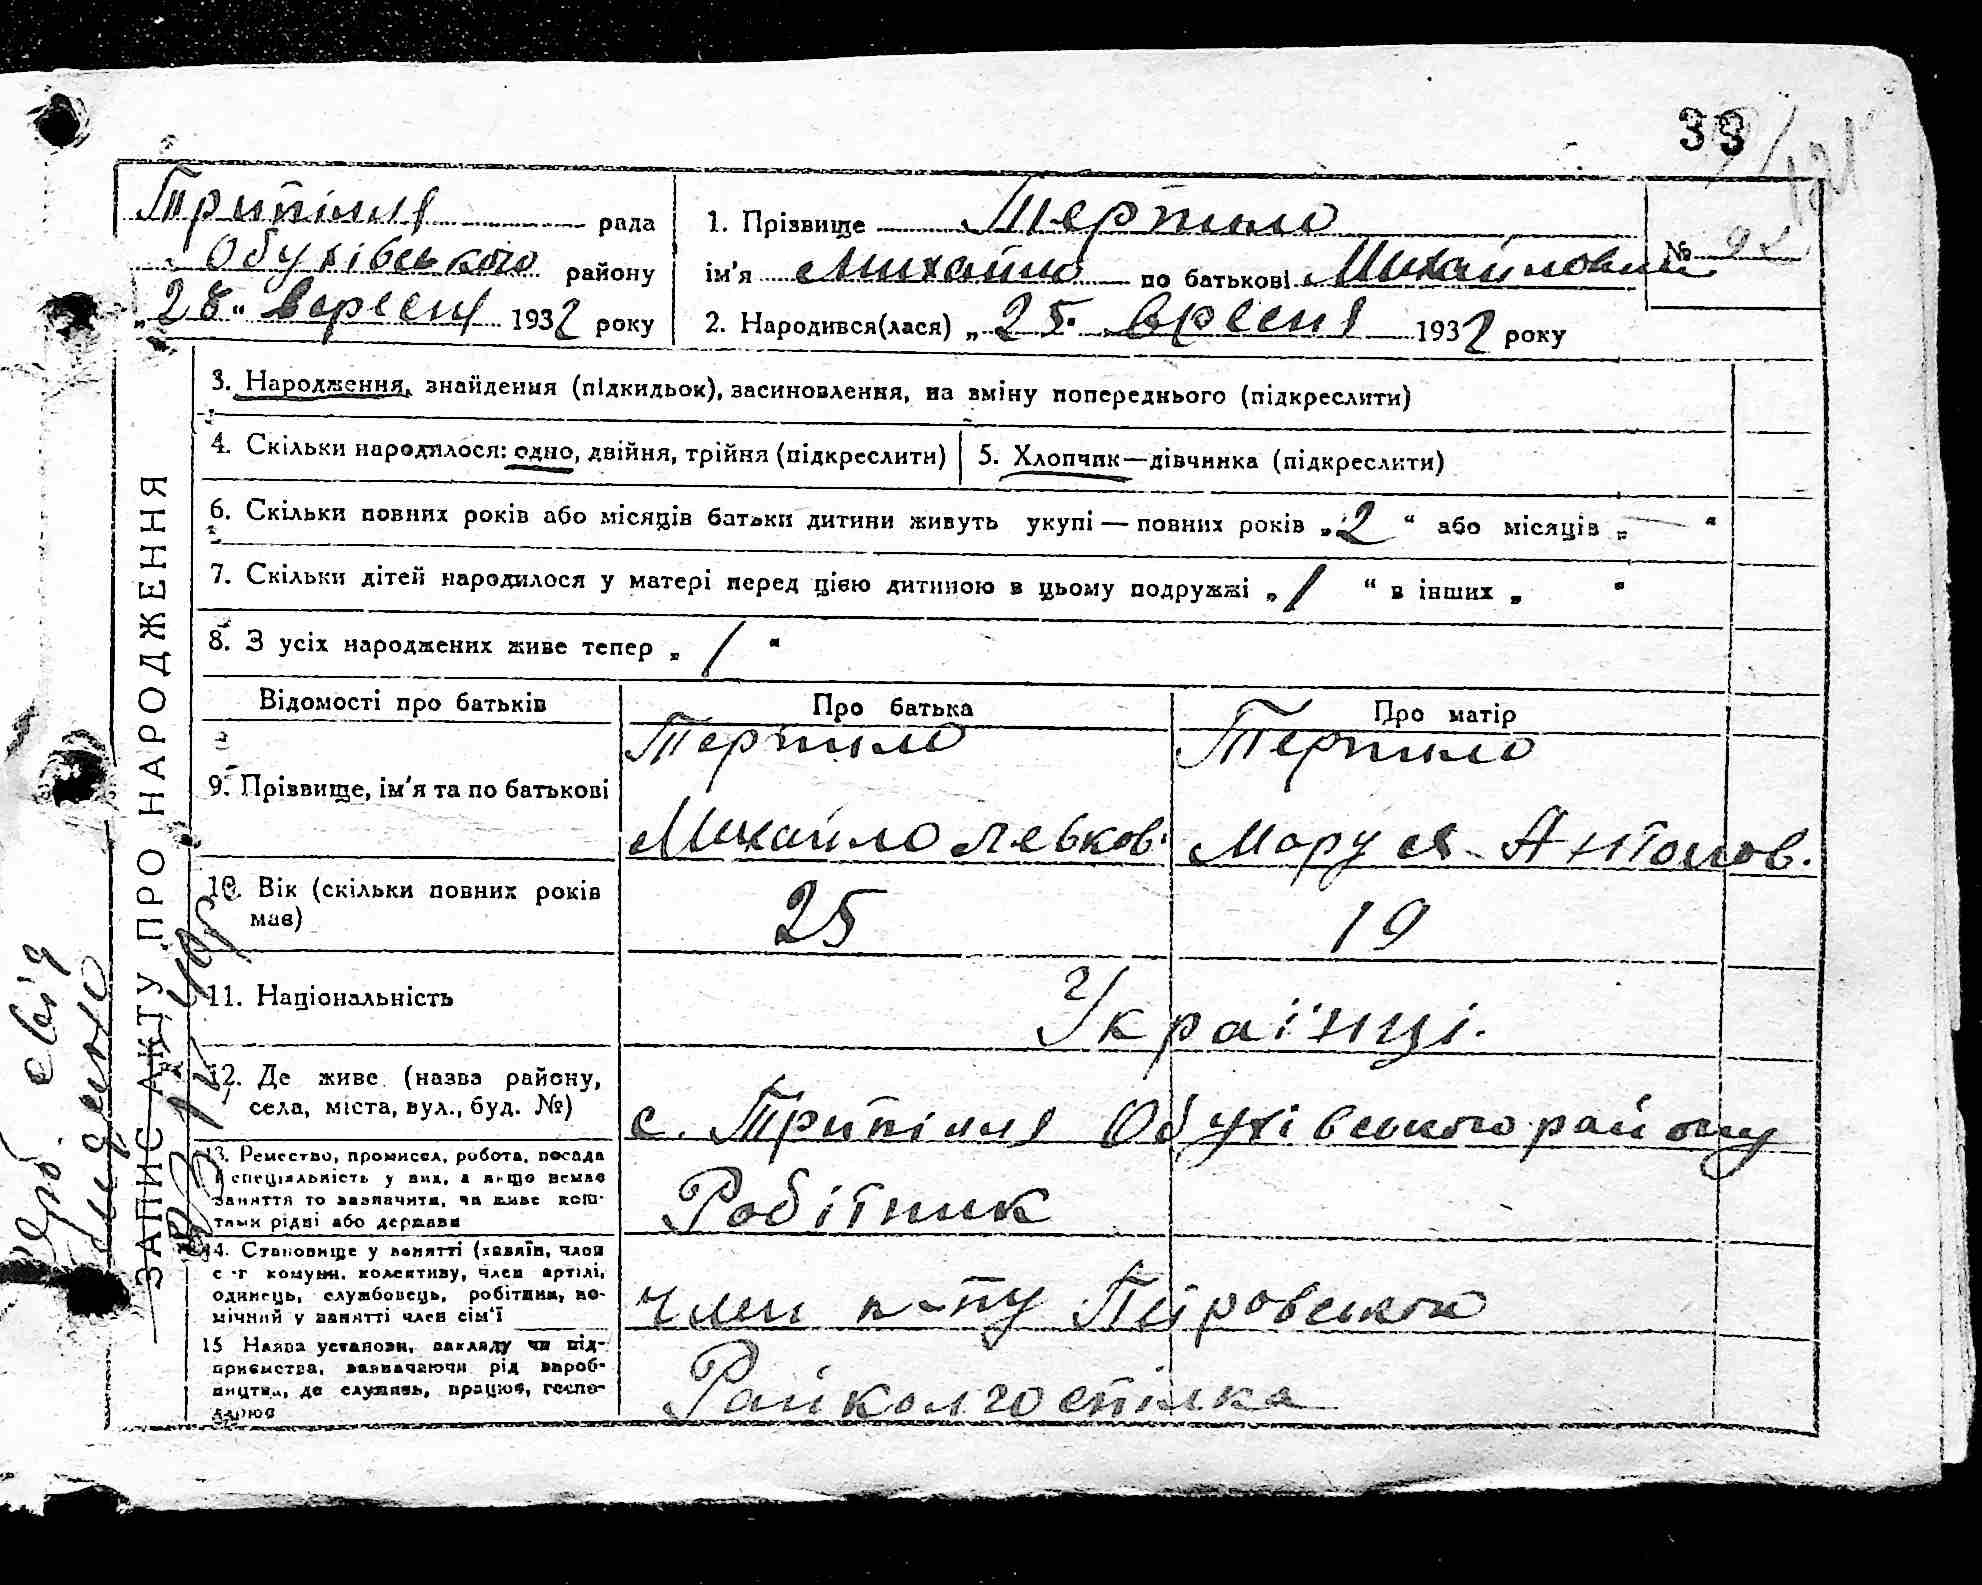 33
Трипілля рада
Обухівського району
„28" вересня 1932 року
1. Прізвище Терпило
ім'я Михайло по батькові Михайлович
№ 92
2. Народився(лася) „25" вресня 1932 року
ЗАПИС АКТУ ПРО НАРОДЖЕННЯ
3. Народження, знайдення (підкидьок), засиновлення, на зміну попереднього (підкреслити)
4. Скільки народилося: одно, двійня, трійня (підкреслити)
5. Хлопчик—дівчинка (підкреслити)
6. Скільки повних років або місяців батьки дитини живуть укупі — повних років „2" або місяців „—"
7. Скільки дітей народилося у матері перед цією дитиною в цьому подружжі „1" в інших „ "
8. З усіх народжених живе тепер „1"
Відомості про батьків Про батька Про матір
Терпило Терпило
9. Прізвище, ім'я та по батькові
Михайло Левков. Маруся Антонов.
10. Вік (скільки повних років
має)
25 19
11. Національність Українці.
12. Де живе (назва району,
села, міста, вул., буд. №)
с. Трипілля Обухівського району
13. Ремество, промисел, робота, посада
і спеціяльність у них, а якщо немає
заняття то зазначити, чи живе кош-
тами рідні або держави
Робітник
14. Становище у занятті (хазяїн, член
с -г комуни, колективу, член артілі,
одинець, службовець, робітник, по-
мічний у занятті член сім'ї
член к-пу Петровського
15 Назва установи, закладу чи під-
приємства, зазначаючи рід вироб-
ництва, де служить, працює, госпо-
дарює
Райколгоспілка